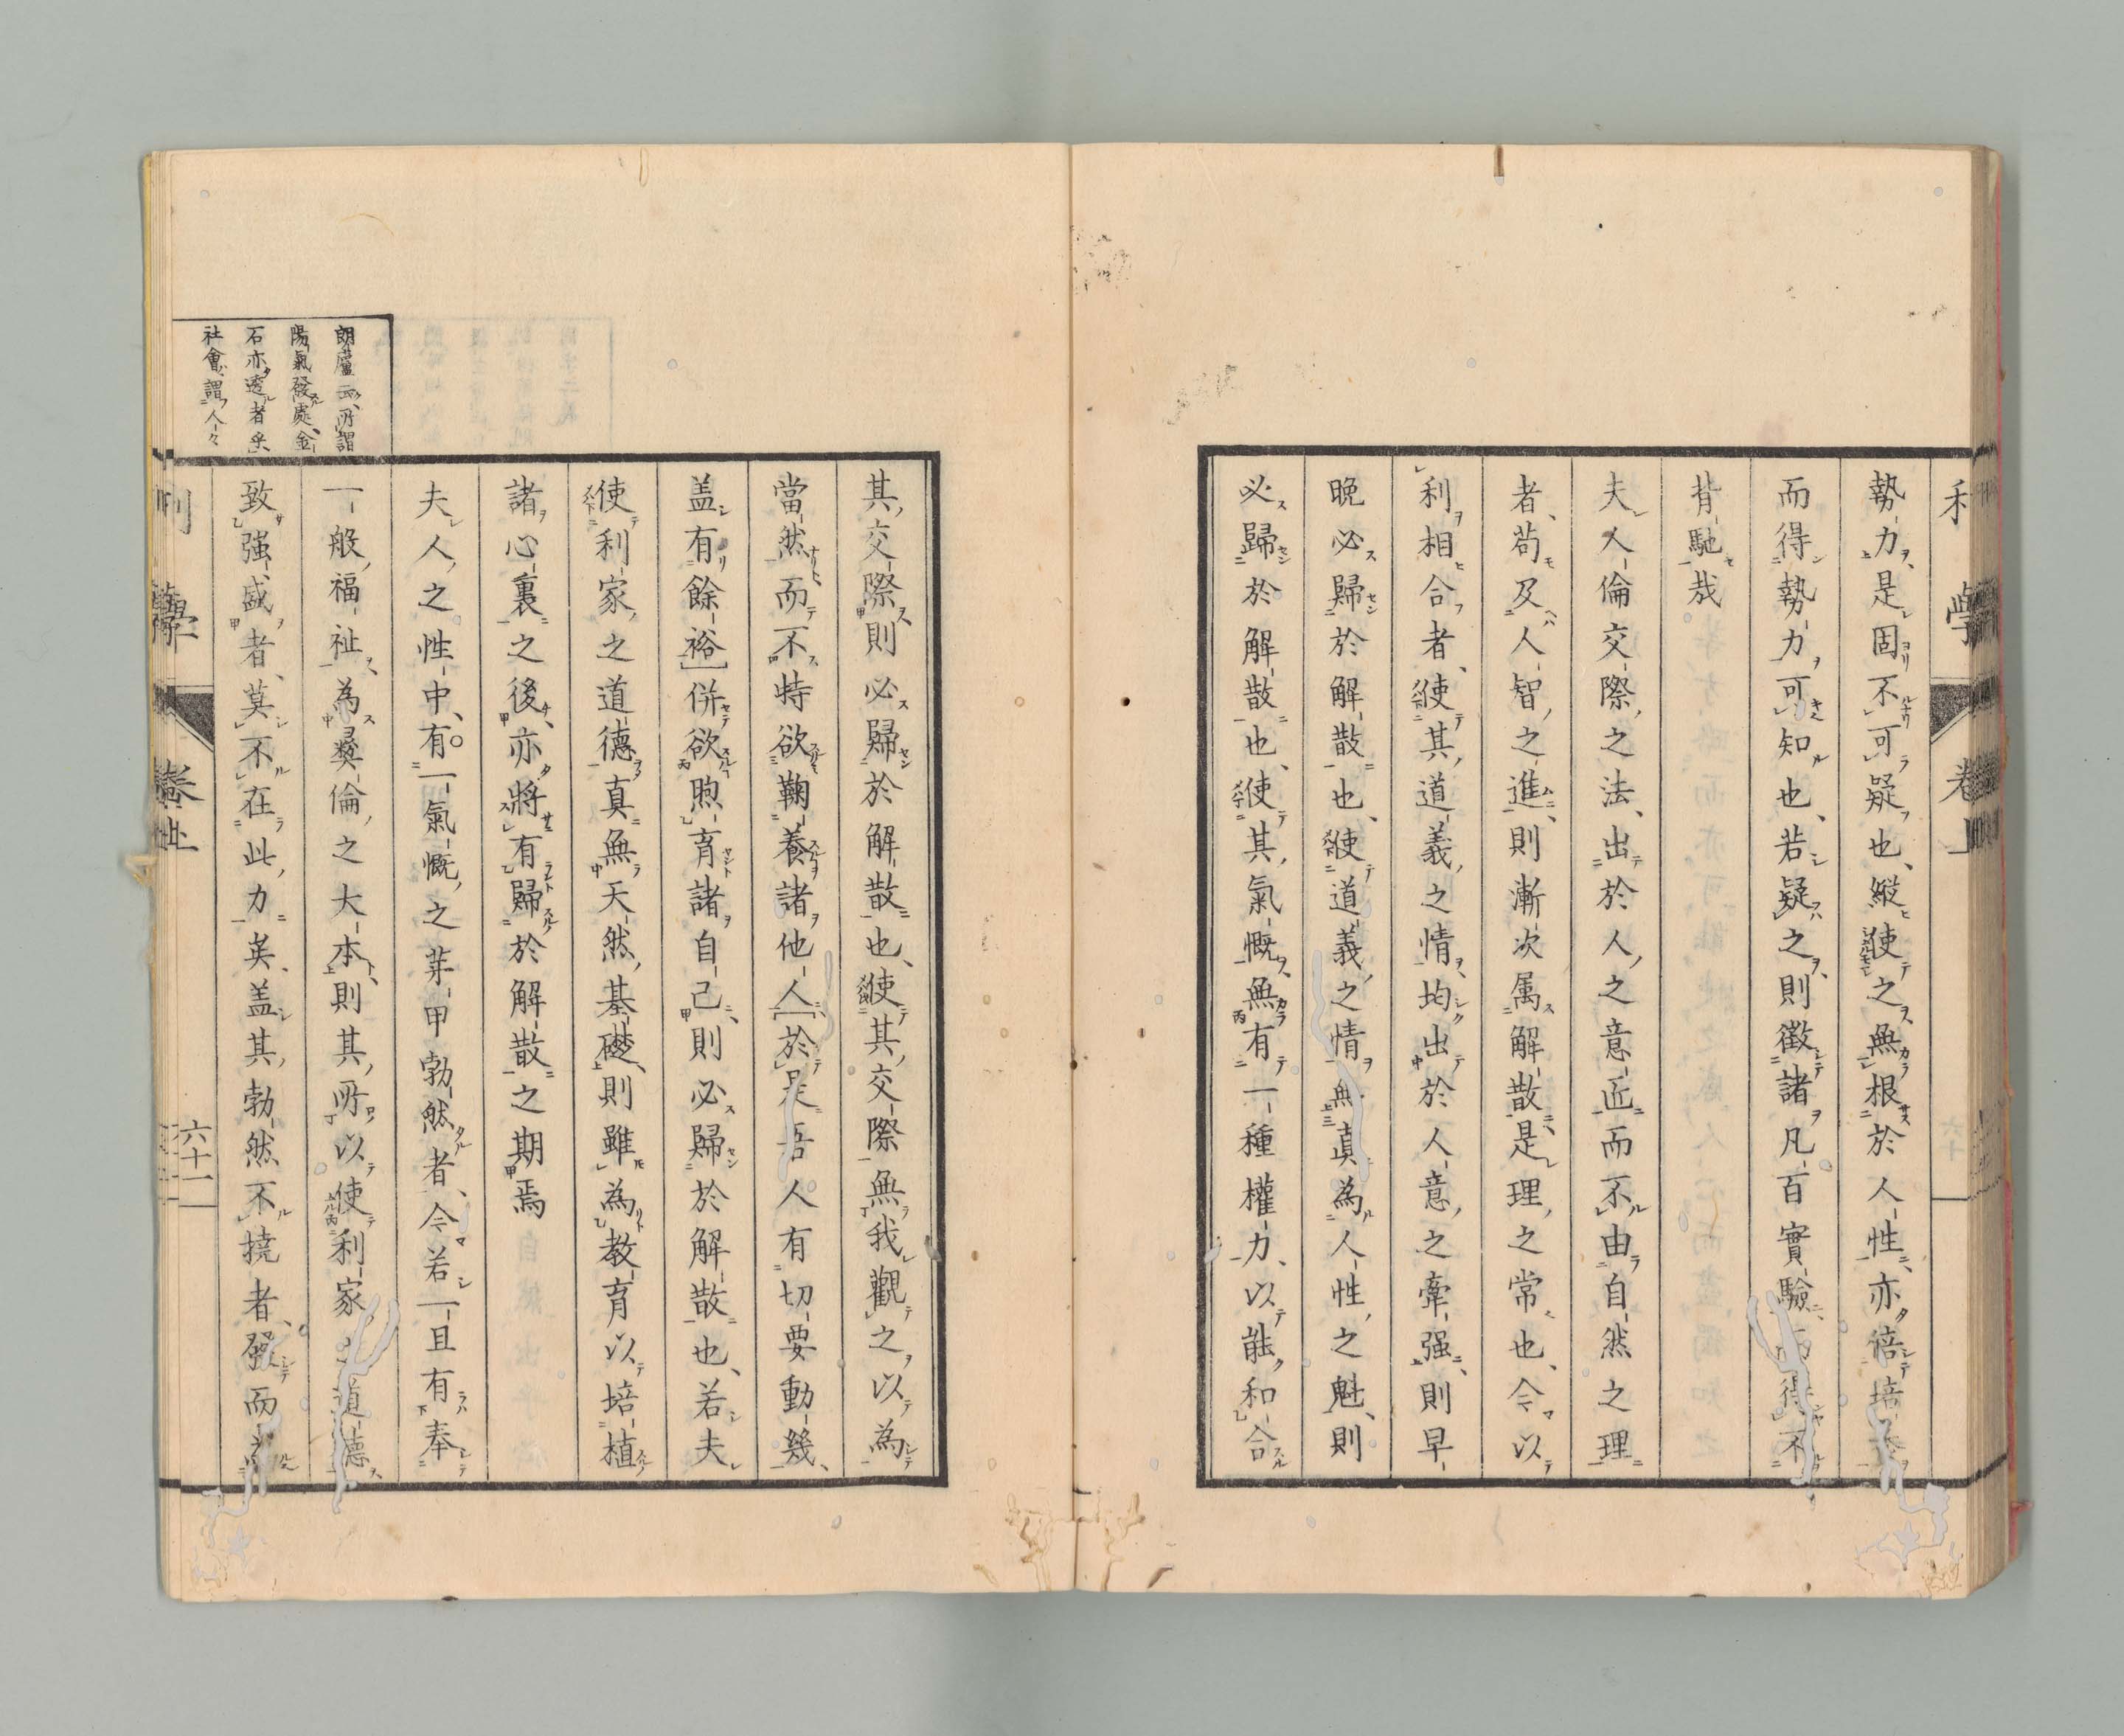 利學 卷上
勢力、是固不可疑也、縱使之無根於人性、亦倍培養
而得勢力可知也、若疑之、則徵諸凡百實驗、而得不
背馳哉。
夫人倫交際之法、出於人之意匠而不由自然之理
者、苟及人智之進、則漸次属解散、是理之常也、今以
利相合者、使其道義之情、均出於人意之牽强、則早
晩必歸於解散也、使道義之情無真為人性之魁、則
必歸於解散也、使其氣慨、無有一種權力、以能和合
其交際則必歸於解散也、使其交際無我觀之以為
當然而不特欲鞠養諸他人[於是吾人有切要動幾、
盖有餘裕]併欲煦育諸自己、則必歸於解散也、若夫
使利家之道德真無天然基礎、則雖為教育以培植
諸心裏之後、亦將有歸於解散之期焉
夫人之性中、有一氣慨之芽甲勃然者、今若一且有奉
一般福祉、為彜倫之大本、則其所以使利家之道德
致强盛者、莫不在此力矣、盖其勃然不撓者、發而
朗廬云、所謂
陽氣發處、金
石亦透者乎、
社會、謂人々
利學 卷上 六十一